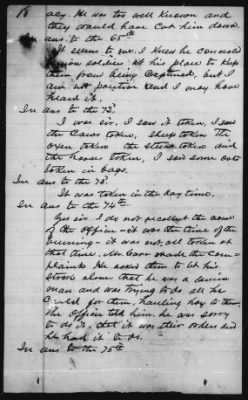 18
acy. He was too well known and
they would have cut him down
In ans. to the 65th
It seems to me I knew he concealed
Union soldiers at his place to keep
them from being captured, but I
am not positive and I may have
heard it.
In ans to the 72d
I was sir. I saw it taken, I saw
the cows taken, sheep taken the
oxen taken the steers taken and
the horses taken, I saw some oats
taken in bags.
In ans to the 73d
It was taken in the day time.
In ans to the 74th
Yes sir I do not recollect the name
of the officer - it was the time of the
burning - it was not all taken at
that time. Mr. made the com-
plaint. He asked them to let his
stock alone that he was a union
man and was trying to do all he
could for them, hauling hay to them
the officer told him he was sorry
to do it, that it was their orders and
he had it to do.
In ans to the 75th